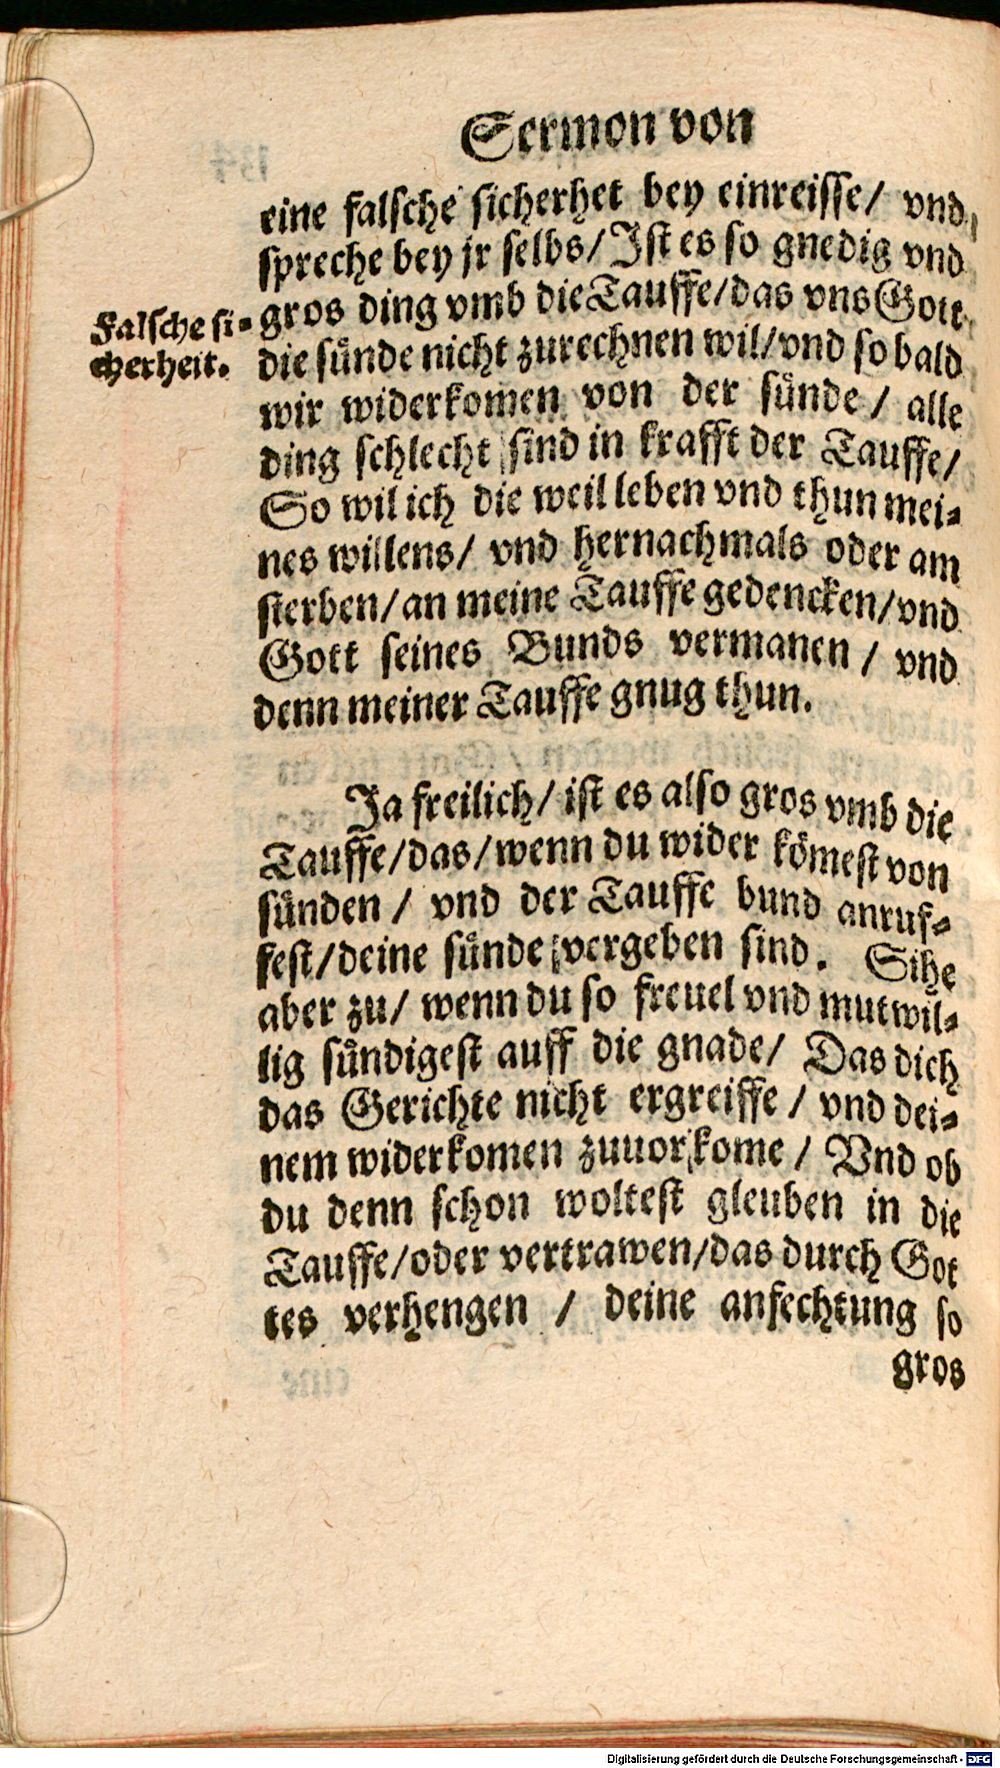 Sermon von
eine falsche sicherhet bey einreisse/ vnd
spreche bey jr selbs/ Ist es so gnedig vnd
gros ding vmb die Tauffe/das vns Gott
die sünde nicht zurechnen wil/vnd so bald
wir widerkomen von der sünde / alle
ding schlecht sind in krafft der Tauffe/
So wil ich die weil leben vnd thun mei-
nes willens/ vnd hernachmals oder am
sterben/an meine Tauffe gedencken/vnd
Gott seines Bunds vermanen / vnd
denn meiner Tauffe gnug thun.
Falsche si-
cherheit.
Ja freilich/ ist es also gros vmb die
Tauffe/das/wenn du wider kömest von
sünden / vnd der Tauffe bund anruf-
fest/deine sünde vergeben sind. Sihe
aber zu/ wenn du so freuel vnd mutwil-
lig sündigest auff die gnade/ Das dich
das Gerichte nicht ergreiffe / vnd dei-
nem widerkomen zuuor kome / Vnd ob
du denn schon woltest gleuben in die
Tauffe/oder vertrawen/das durch Got
tes verhengen / deine anfechtung so
gros
Digitalisierung gefördert durch die Deutsche Forschungsgemeinschaft - DFG